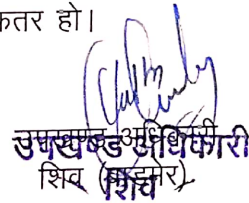 कतर हो।
उपखण्ड अधिकारी
शिव (बाड़मेर)
शिव